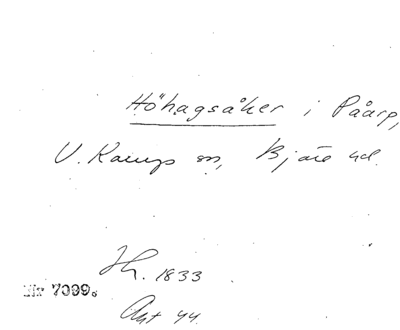 Höhagsåker i Påarp,
V. Karups sn, Bjäre hd.
Jh. 1833
Nr 7099.
Akt 44